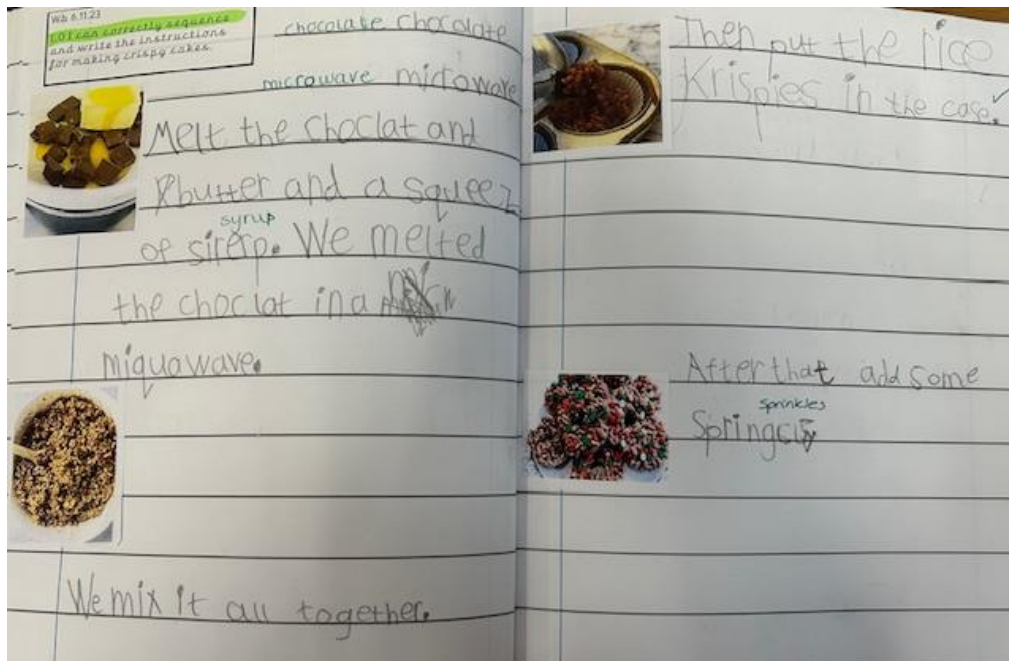 Wb 6.11.23
LO I can correctly sequence
and write the instructions
for making crispy cakes.
chocolate chocolate
microwave microwave
Melt the choclat and
butter and a squeez
syrup
of sirerp. We melted
the choclat in a
miquawave.
We mix it all together.
Then put the rice
Krispies in the case.
After that add some
sprinkles